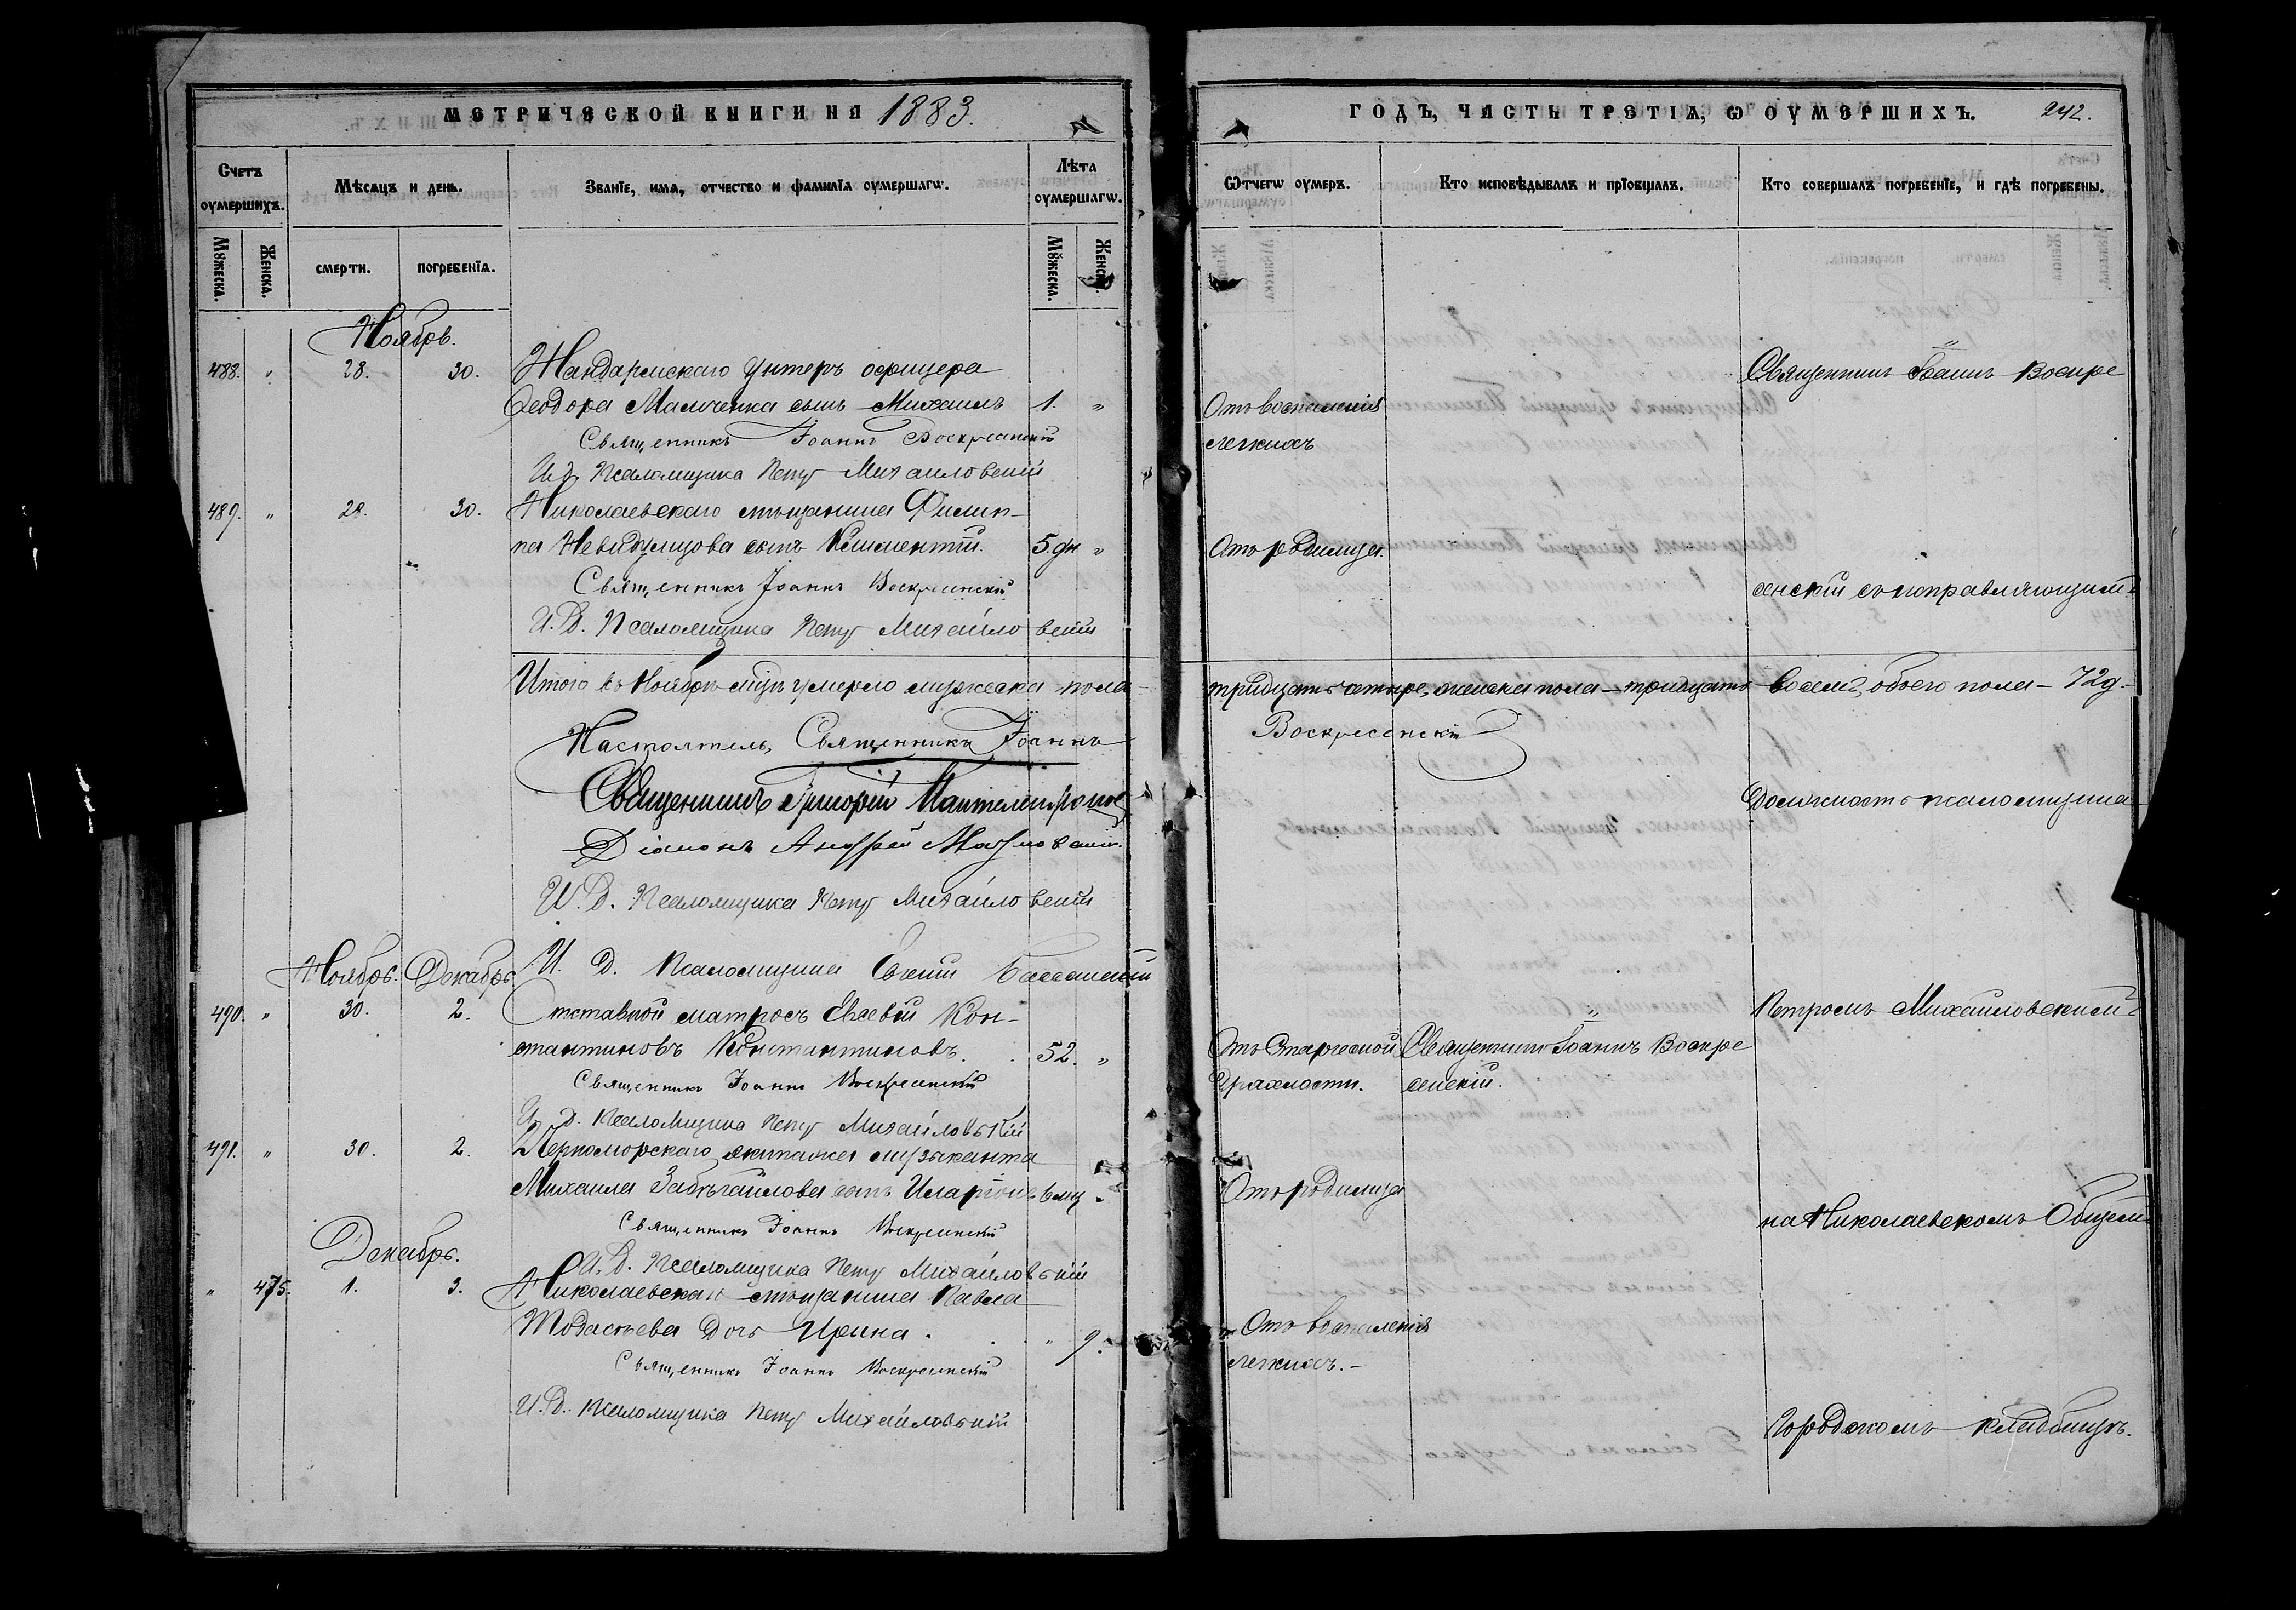 МЕТРИЧЕСКОЙ КНИГИ НА 1883.
Счетъ оумершихъ.
Мѣсяцъ и день.
Званїе, имя, отчество и фамилїя оумершагѡ.
Лѣта оумершагѡ.
Мꙋжеска.
Женска.
смерти.
погребенїя.
Мꙋжеска.
Женска.
Ноябрь.
488. " 28. 30. Жандармскаго Унтеръ офицера
Ѳеодора Мальченка сынъ Михаилъ 1. "
Священникъ Іоаннъ Воскресенскій
И. д. Псаломщика Петръ Михайловскій
489. " 28. 30. Николаевскаго мѣщанина Филип-
па сынъ Климентій. 5 дн "
Священникъ Іоаннъ Воскресенскій
И. Д. Псаломщика Петръ Михайловскій
Итого въ Ноябрѣ м-цѣ умерло мужеска пола —
Настоятель, Священникъ Іоаннъ
Священникъ Григорій Пантелеймоновъ
Діаконъ Андрей
И. Д. Псаломщика Петръ Михайловскій
И. Д. Псаломщика
Ноябрь. Декабрь.
490. " 30. 2. Отставной матросъ Евсевій Кон-
стантиновъ Константиновъ. 52. "
Священникъ Іоаннъ Воскресенскій
И. д. Псаломщика Петръ Михайловскій
491. " 30. 2. Черноморскаго экипажа музыканта
Михаила сынъ Иларіонъ 6 мц "
Священникъ Іоаннъ Воскресенскій
Декабрь.
И. Д. Псаломщика Петръ Михайловскій
" 475. 1. 3. Николаевскаго мѣщанина Павла
дочь Ирина. " 9.
Священникъ Іоаннъ Воскресенскій
И. Д. Псаломщика Петръ Михайловскій
ГОДЪ, ЧАСТЬ ТРЕТІЯ, Ѡ ОУМЕРШИХЪ. 242.
Ѿтчегѡ оумеръ.
Кто исповѣдывалъ и прїобщалъ.
Кто совершалъ погребенїе, и гдѣ погребены.
Священникъ Іоаннъ Воскре
Отъ воспаленія
легкихъ
Отъ родимца.
сенскій съ исправляющимъ
тридцать четыре, женска пола — тридцать восемь, обоего пола — 72 д.
Воскресенскій
Должность псаломщика
"
Петромъ Михайловскимъ
Отъ Старческой Священникъ Іоаннъ Воскре
дряхлости. сенскій.
Отъ родимца
на Николаевскомъ Общем
Отъ воспаленія
легкихъ. —
Городскомъ кладбищѣ.